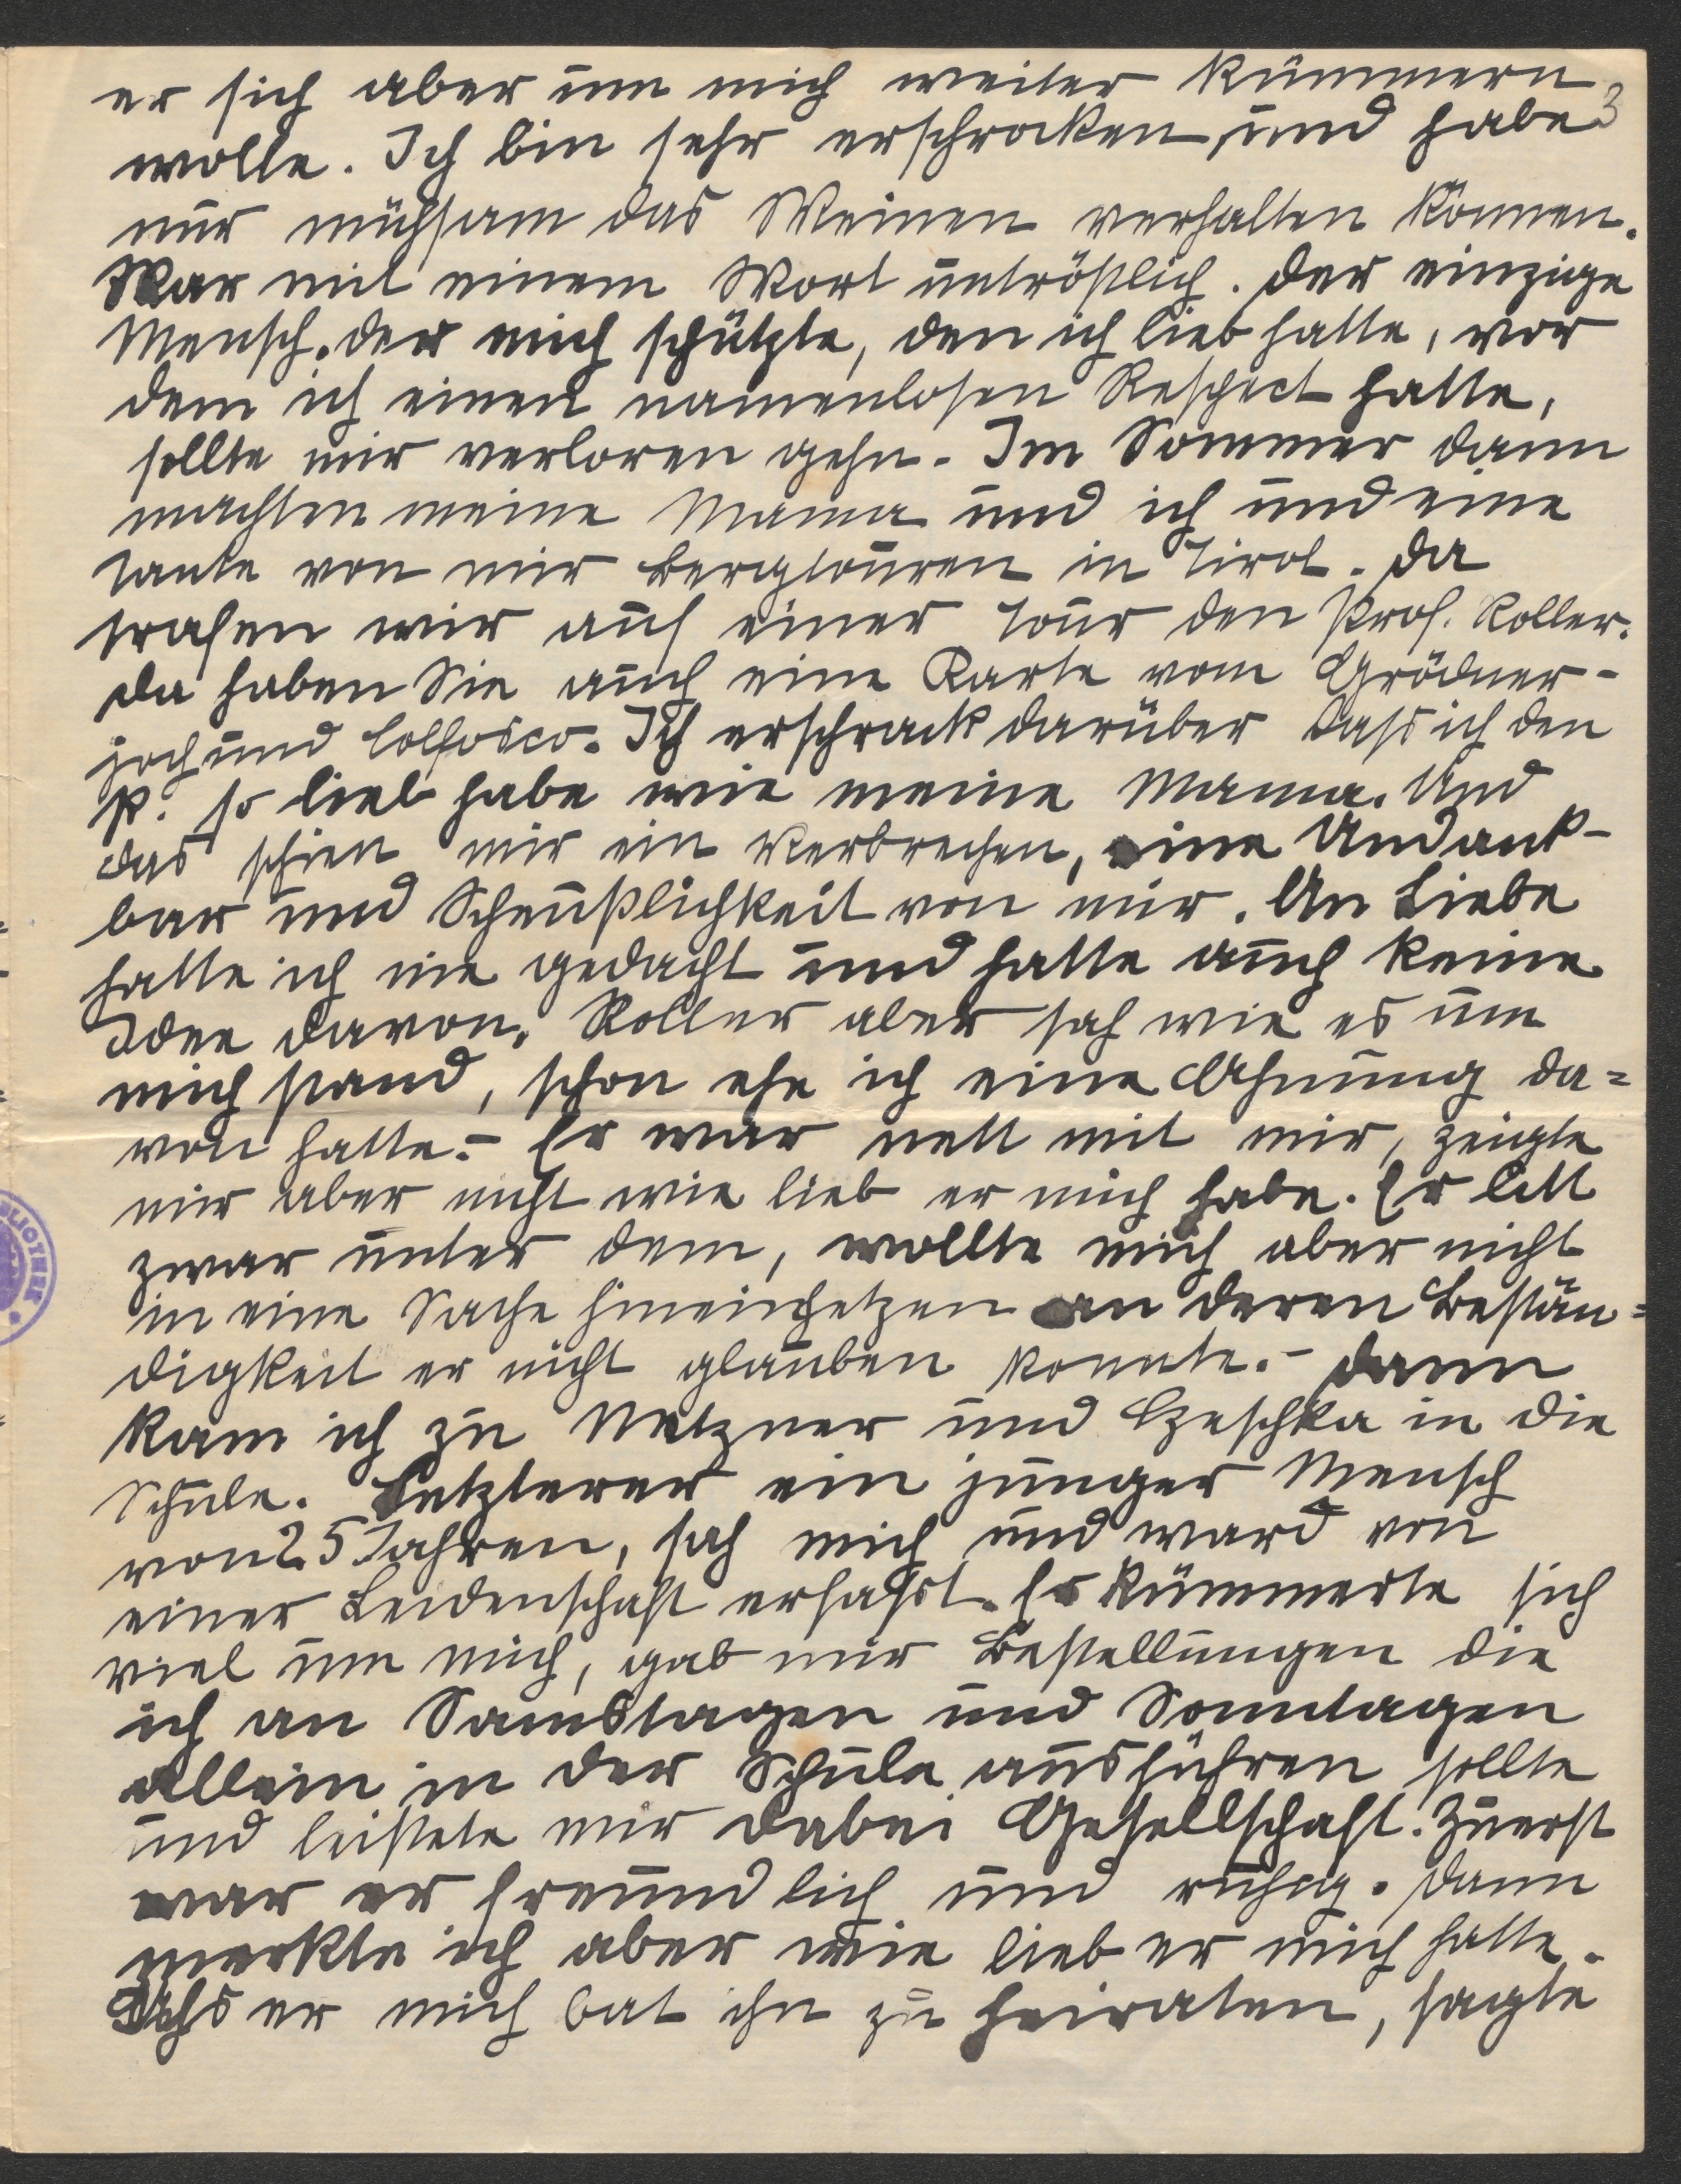 er sich aber um mich weiter kümmern
3
wolle. Ich bin sehr erschrocken, und habe
nur mühsam das Weinen verhalten können.
War mit einem Wort untröstlich. Der einzige
Mensch. der mich schützte, den ich lieb hatte, vor
dem ich einen namenlosen Respect hatte,
sollte mir verloren gehn. Im Sommer dann
machten meine Mama und ich und eine
Tante von mir Bergtouren in Tirol. Da
trafen wir auf einer Tour den Prof. Roller.
Da haben Sie auch eine Karte vom Grödner-
joch und Colfosco. Ich erschrack darüber dass ich den
P. so lieb habe wie meine Mama. Und
das schien mir ein Verbrechen, eine Undank-
bar und Scheußlichkeit von mir. An Liebe
hatte ich nie gedacht und hatte auch keine
Idee davon. Roller aber sah wie es um
mich stand, schon ehe ich eine Ahnung da=
von hatte.- Er war nett mit mir, zeigte
mir aber nicht wie lieb er mich habe. Er litt
zwar unter dem, wollte mich aber nicht
in eine Sache hineinhetzen an deren Bestän=
digkeit er nicht glauben konnte.- Dann
kam ich zu Metzner und Czeschka in die
Schule. Letzterer ein junger Mensch
von 25 Jahren, sah mich und ward von
einer Leidenschaft erfasst. Er kümmerte sich
viel um mich, gab mir Bestellungen die
ich an Samstagen und Sonntagen
allein in der Schule ausführen sollte
und leistete mir dabei Gesellschaft. Zuerst
war er freundlich und ruhig. Dann
merkte ich aber wie lieb er mich hatte.
Als er mich bat ihn zu heiraten, sagte